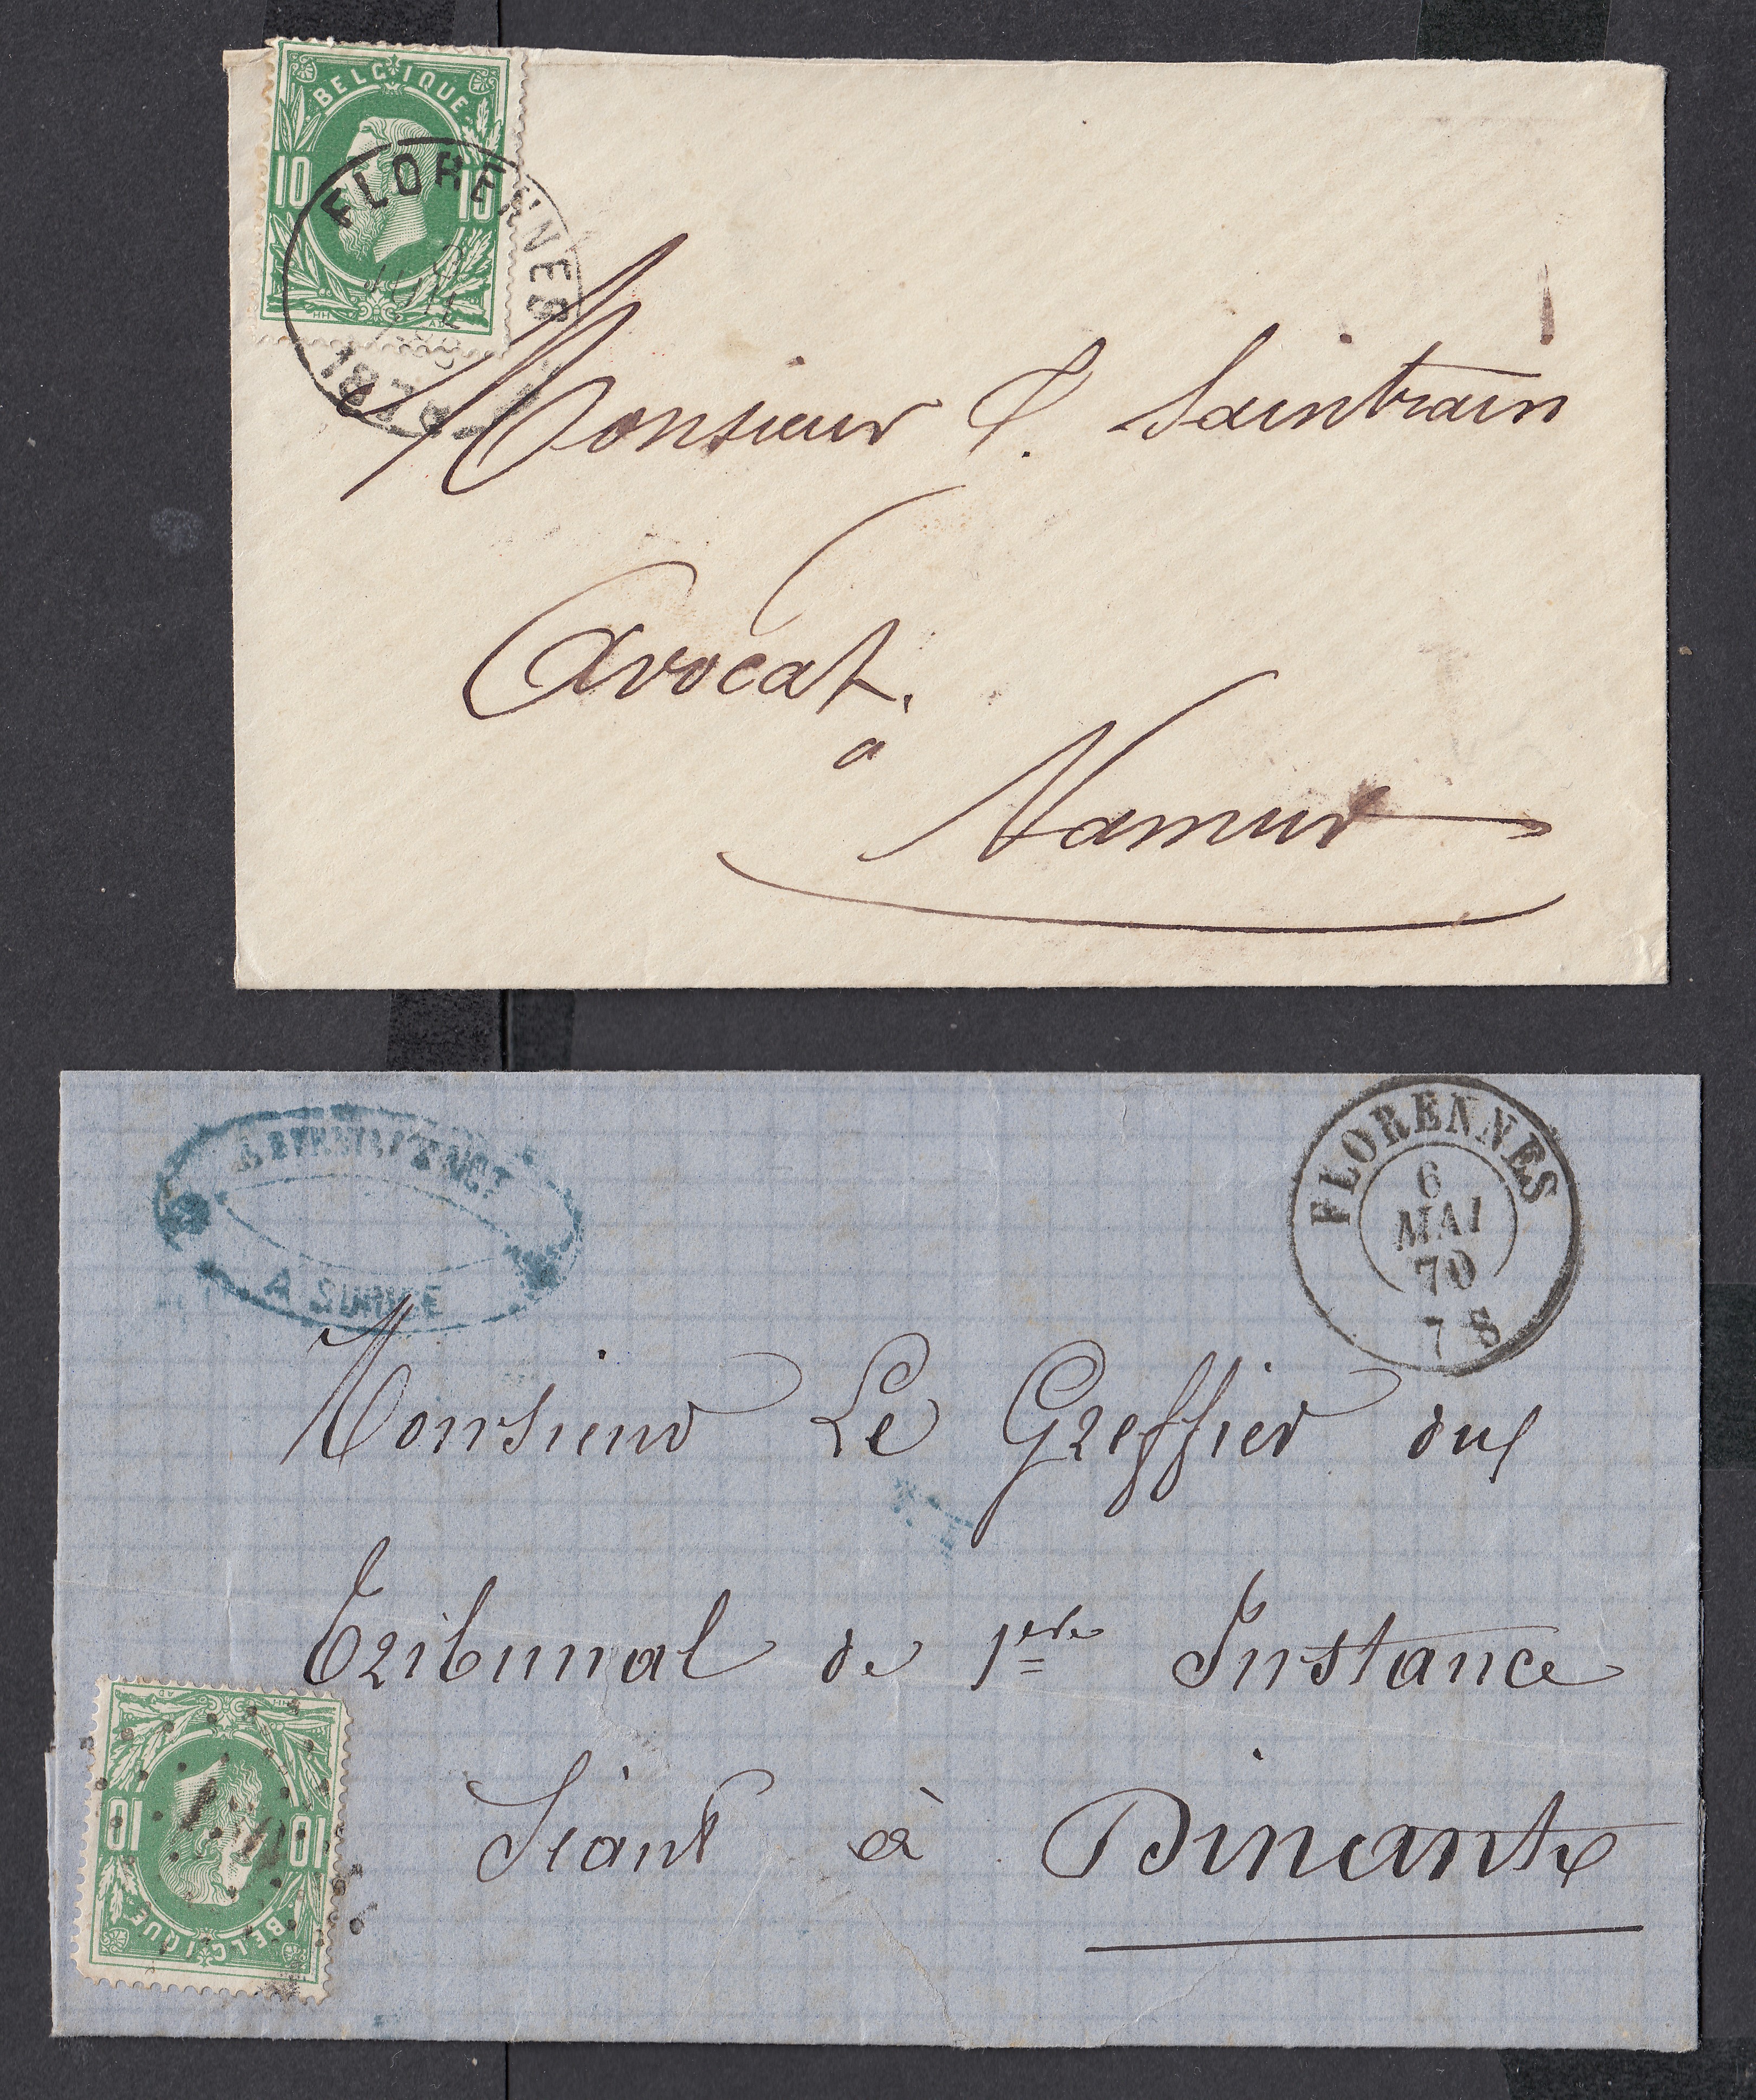 BELGIQUE
10 10
FLORENNES
Monsieur
Saintrain
Avocat.
a
Namur
FLORENNES
6
MAI
70
7 S
A
Monsieur Le Greffier du
Tribunal de 1ère Instance
Séant à Dinant
10 10
BELGIQUE